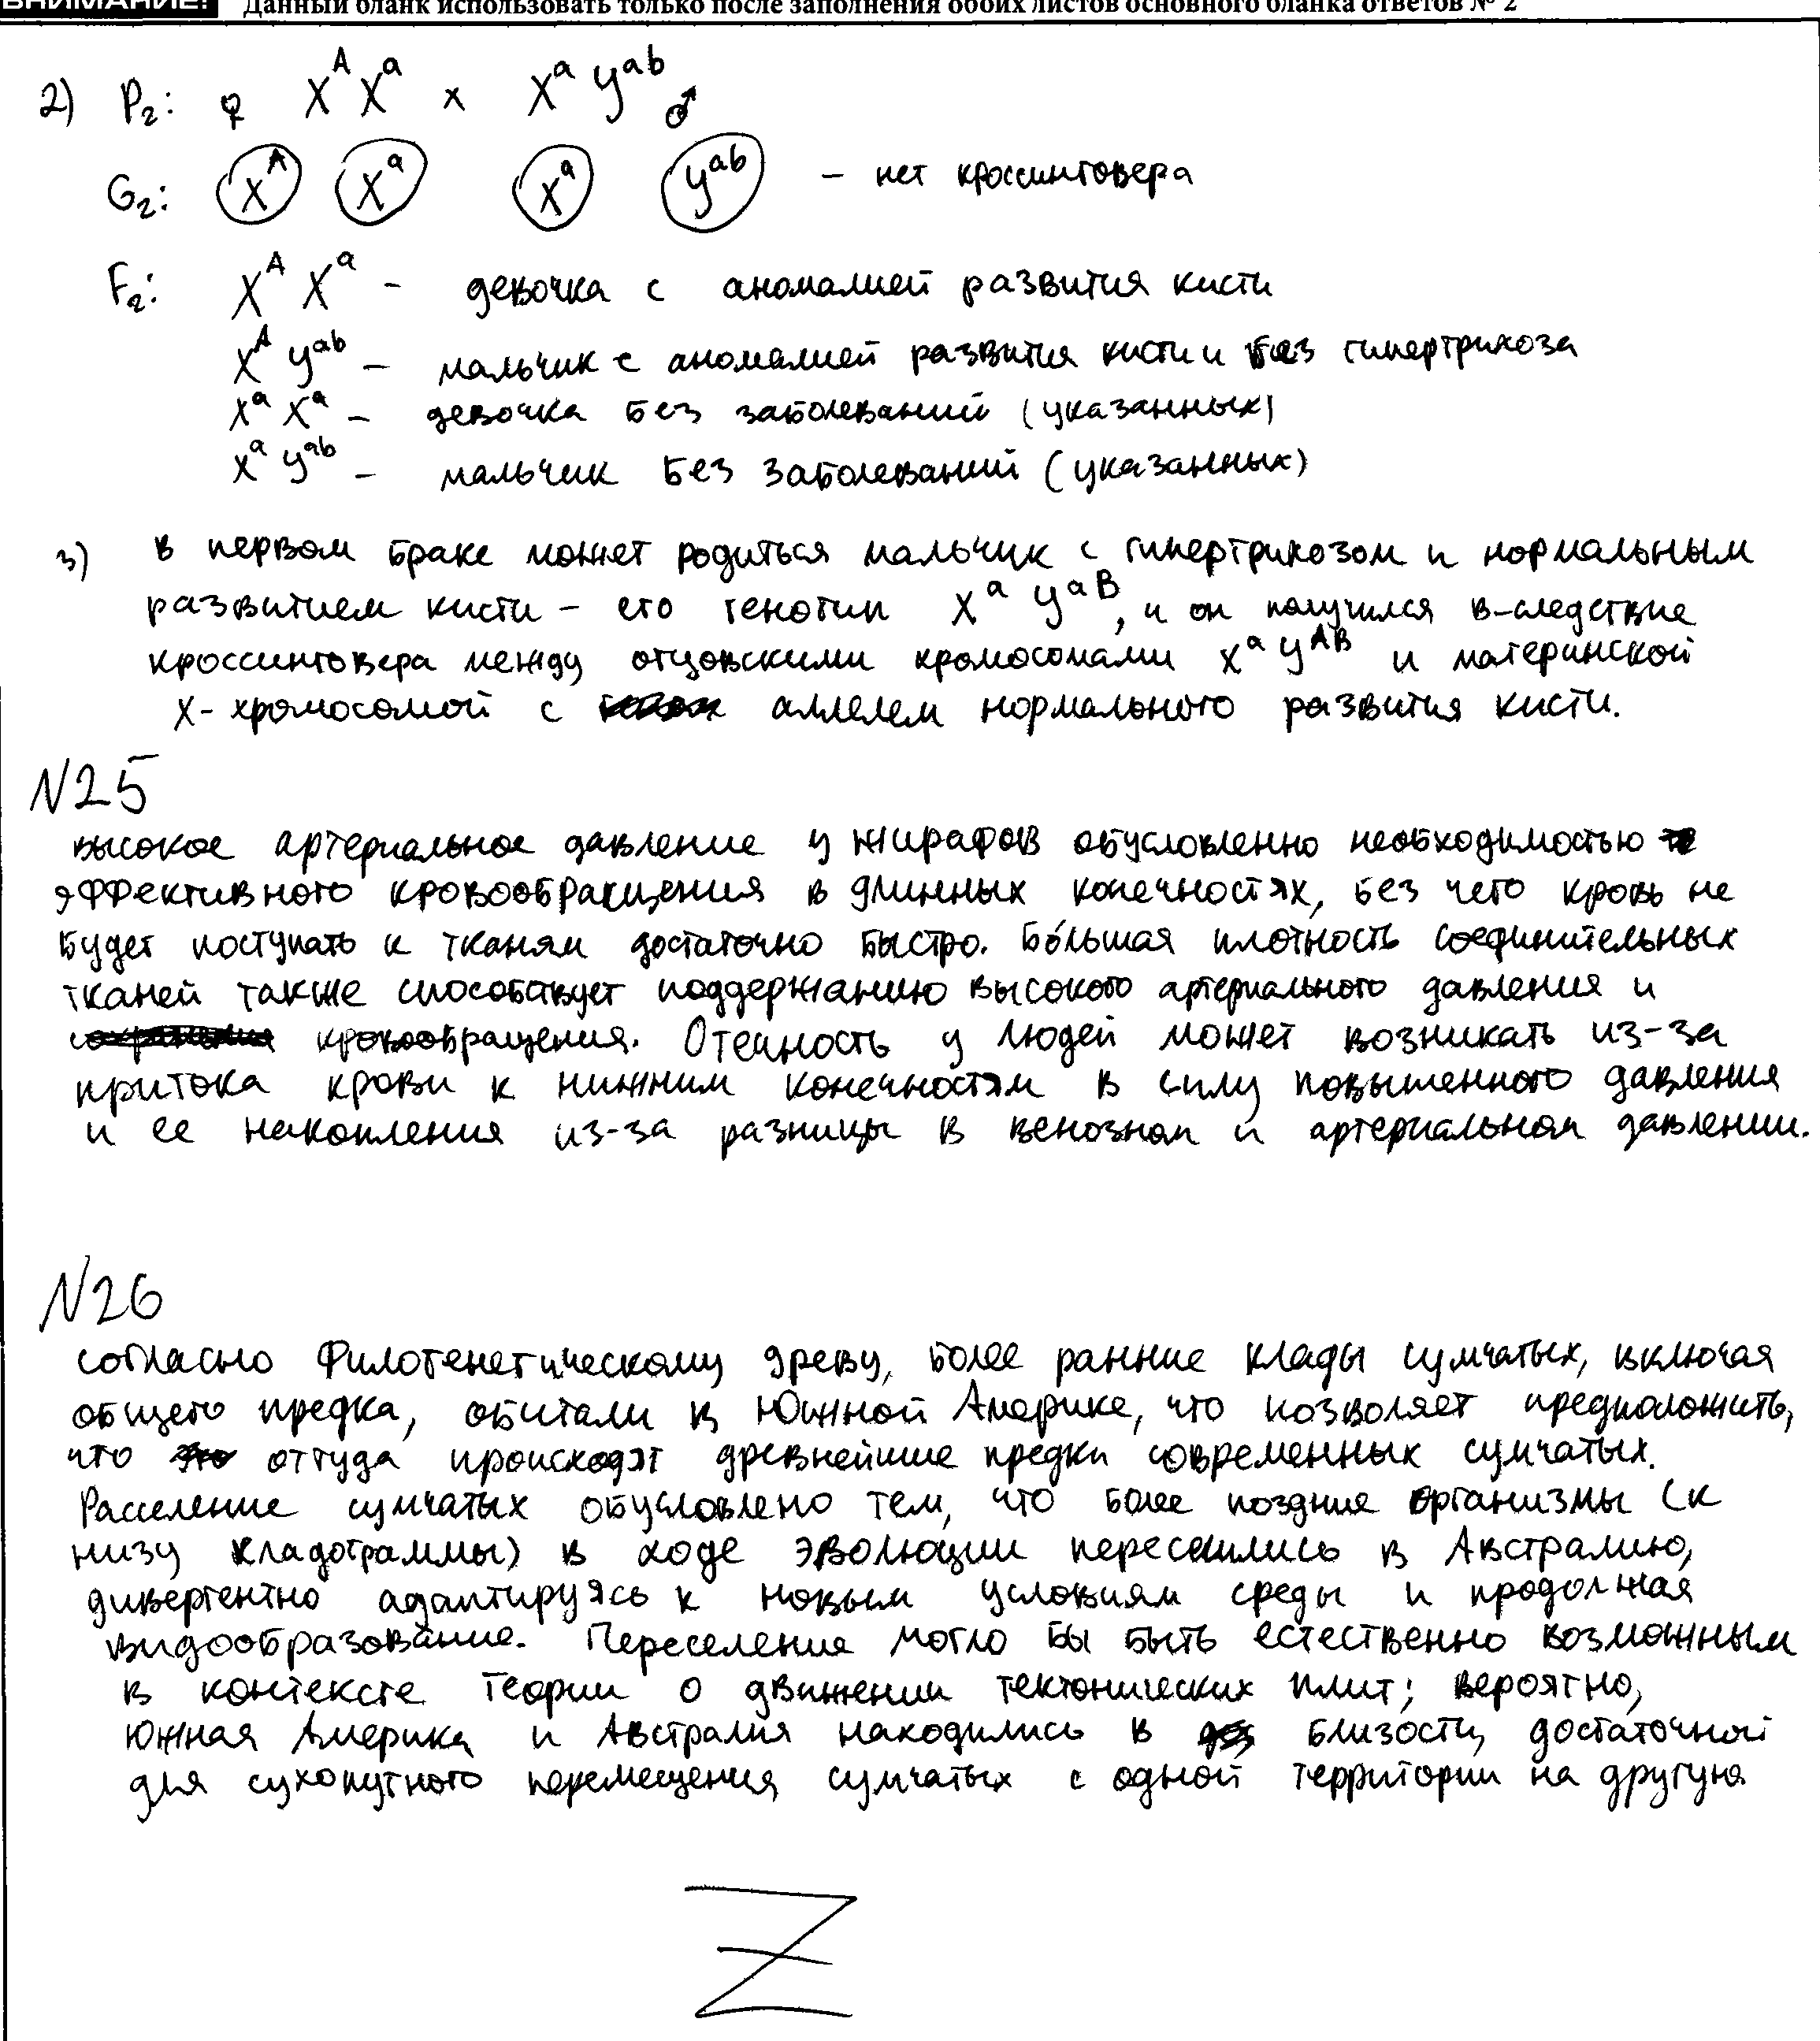 ВНИМАНИЕ! Данный бланк использовать только после заполнения обоих листов основного бланка ответов № 2
2) P₂: ♀ X^A X^a x X^a Y^ab ♂
G₂: X^A X^a X^a Y^ab – нет кроссинговера
F₂: X^A X^a – девочка с аномалией развития кисти
X^A Y^ab – мальчик с аномалией развития кисти и без гипертрихоза
X^a X^a – девочка без заболеваний (указанных)
X^a Y^ab – мальчик без заболеваний (указанных)
3) в первом браке может родиться мальчик с гипертрихозом и нормальным
развитием кисти – его генотип X^a Y^aB, и он получился в-следствие
кроссинговера между отцовскими хромосомами X^a Y^AB и материнской
X-хромосомой с аллелем нормального развития кисти.
N25
высокое артериальное давление у жирафов обусловленно необходимостью
эффективного кровообращения в длинных конечностях, без чего кровь не
будет поступать к тканям достаточно быстро. Бо́льшая плотность соединительных
тканей также способствует поддержанию высокого артериального давления и
кровообращения. Отечность у людей может возникать из-за
притока крови к нижним конечностям в силу повышенного давления
и ее накопления из-за разницы в венозном и артериальном давлении.
N26
согласно филогенетическому древу, более ранние клады сумчатых, включая
общего предка, обитали в Южной Америке, что позволяет предположить,
что оттуда происходят древнейшие предки современных сумчатых.
Расселение сумчатых обусловлено тем, что более поздние организмы (к
низу кладограммы) в ходе эволюции переселились в Австралию,
дивергентно адаптируясь к новым условиям среды и продолжая
видообразование. Переселение могло бы быть естественно возможным
в контексте теории о движении тектонических плит; вероятно,
Южная Америка и Австралия находились в близости, достаточной
для сухопутного перемещения сумчатых с одной территории на другую
Z